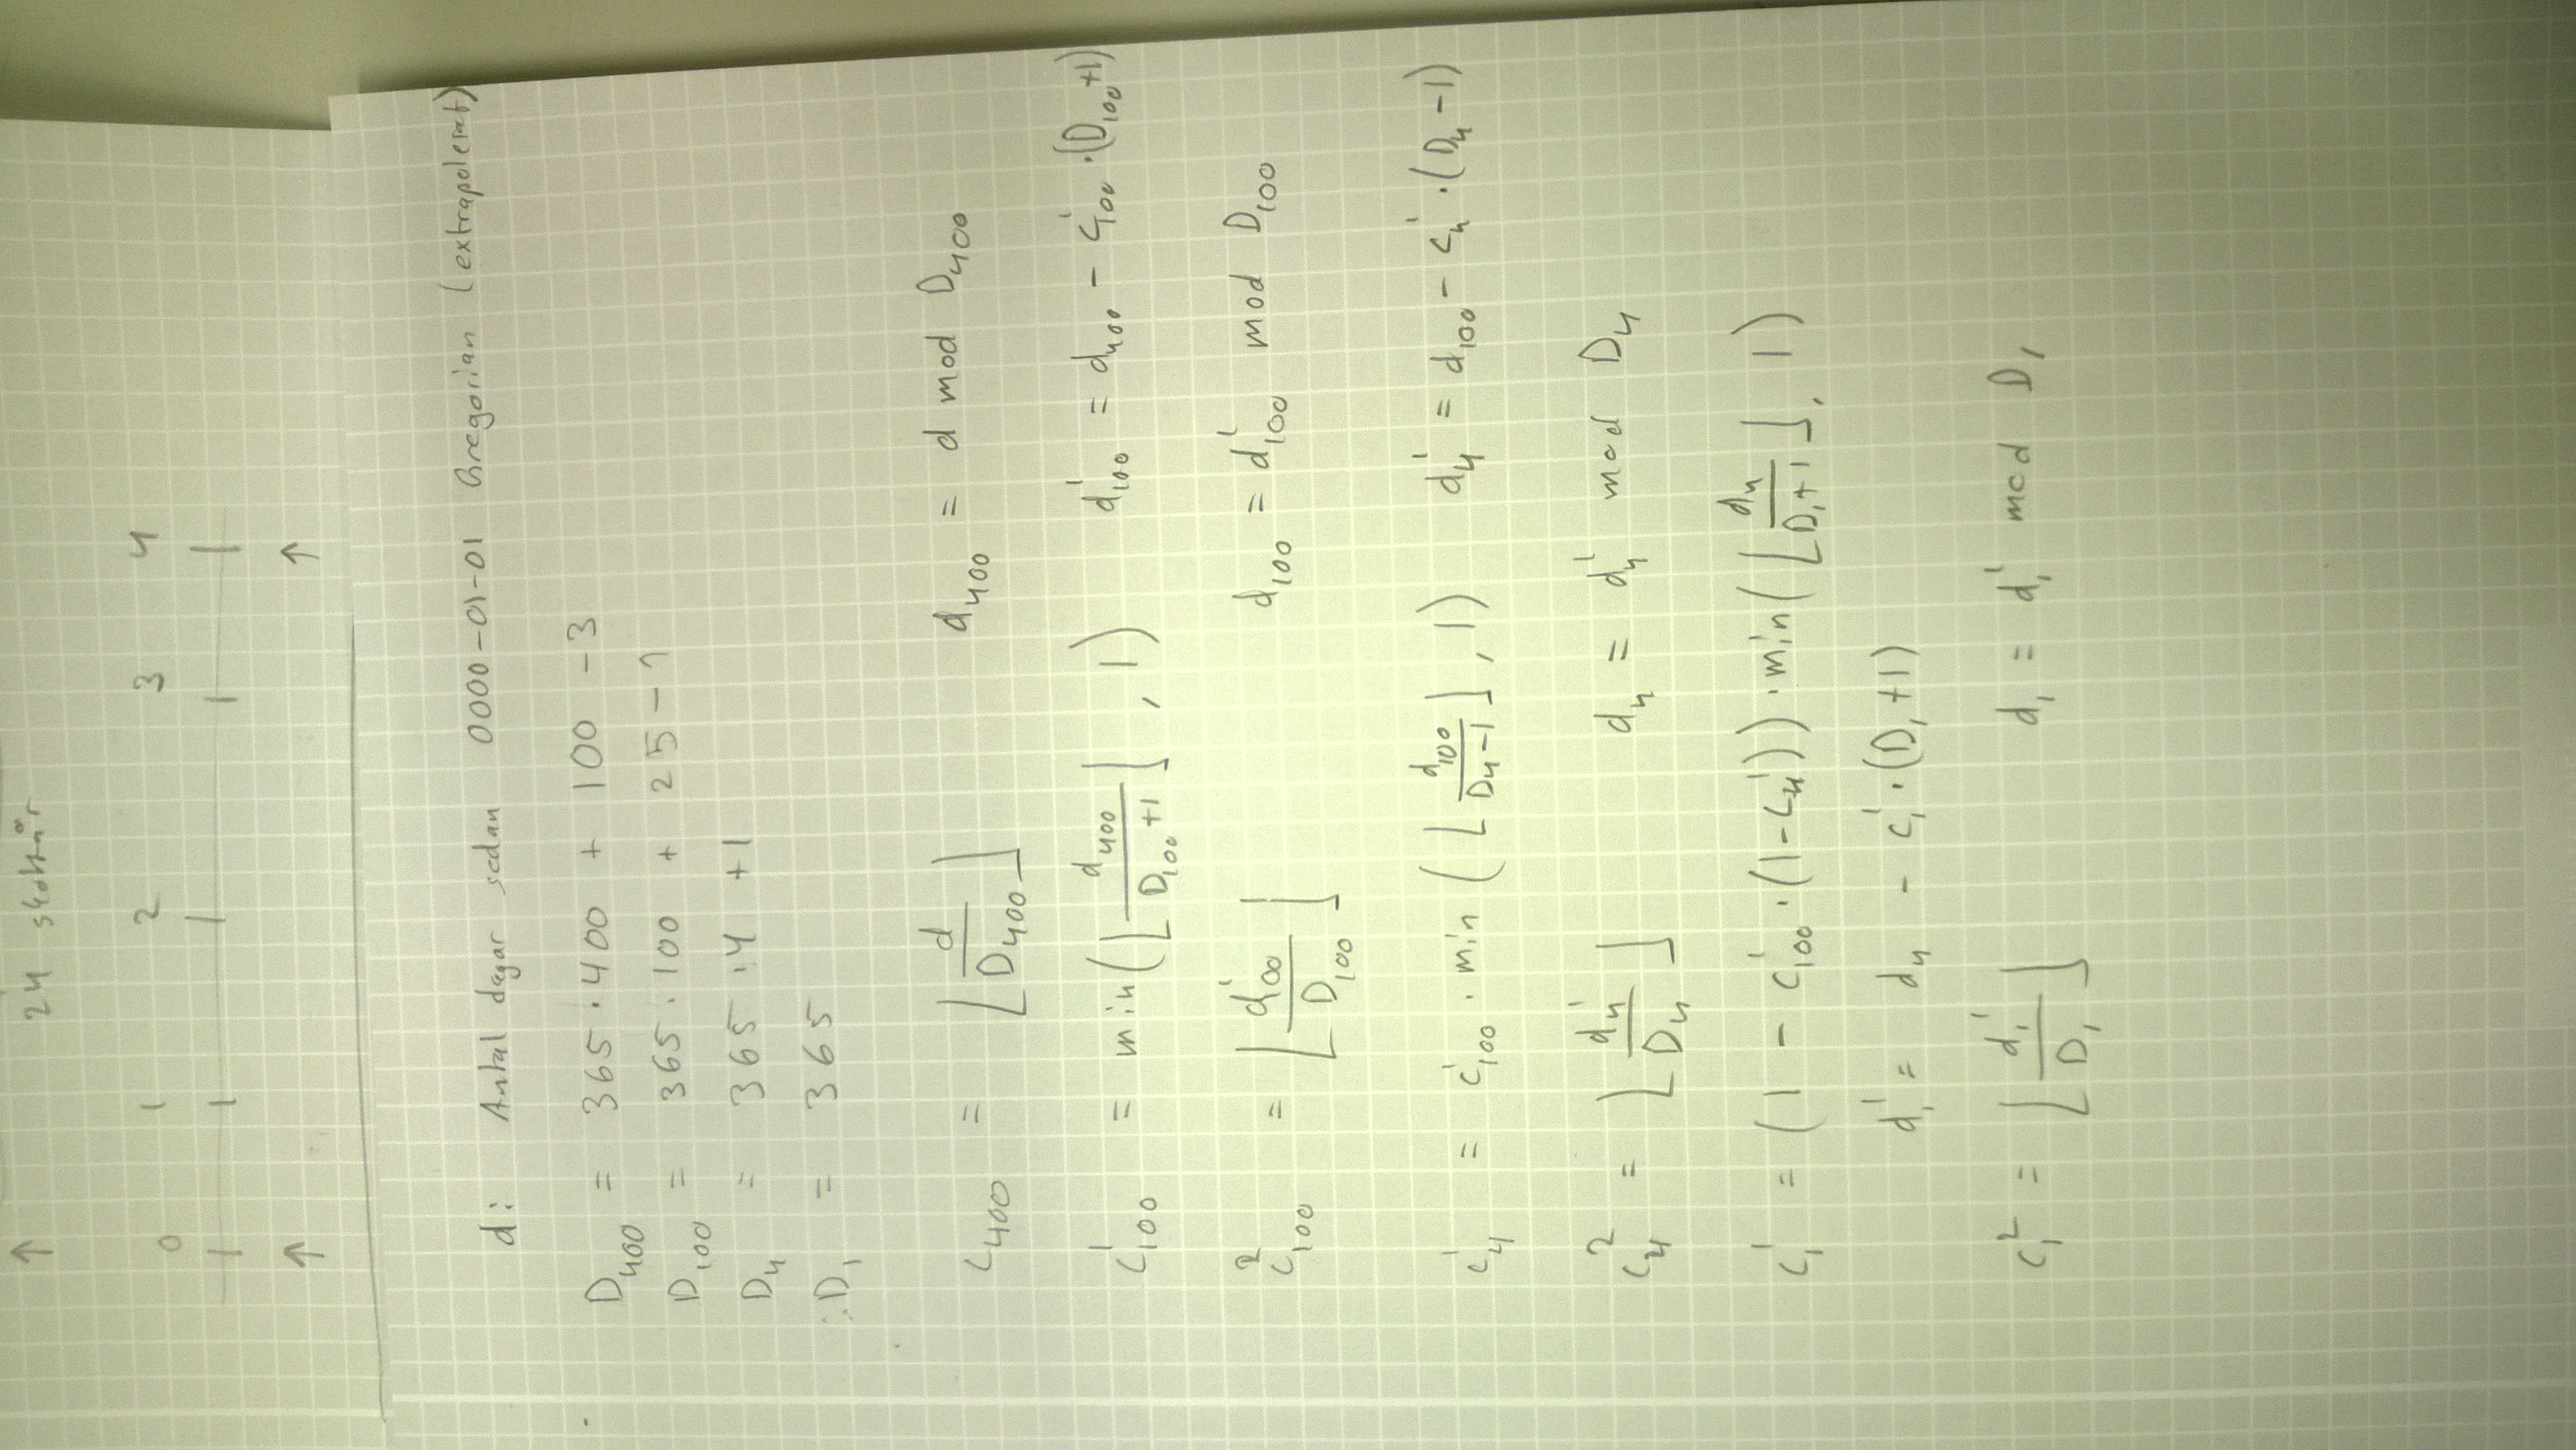 24 skottår
0 1 2 3 4
↑ ↑
d: Antal dagar sedan 0000-01-01 Gregorian (extrapolerat)
D₄₀₀ = 365·400 + 100 - 3
D₁₀₀ = 365·100 + 25 - 1
D₄ = 365·4 + 1
D₁ = 365
c₄₀₀ = ⌊d/D₄₀₀⌋ d₄₀₀ = d mod D₄₀₀
c¹₁₀₀ = min(⌊d₄₀₀/(D₁₀₀+1)⌋, 1) d¹₁₀₀ = d₄₀₀ - c¹₁₀₀·(D₁₀₀+1)
c²₁₀₀ = ⌊d¹₁₀₀/D₁₀₀⌋ d₁₀₀ = d¹₁₀₀ mod D₁₀₀
c¹₄ = c¹₁₀₀·min(⌊d₁₀₀/(D₄-1)⌋, 1) d¹₄ = d₁₀₀ - c¹₄·(D₄-1)
c²₄ = ⌊d¹₄/D₄⌋ d₄ = d¹₄ mod D₄
c¹₁ = (1 - c¹₁₀₀·(1-c¹₄))·min(⌊d₄/(D₁+1)⌋, 1)
d¹₁ = d₄ - c¹₁·(D₁+1)
c²₁ = ⌊d¹₁/D₁⌋ d₁ = d¹₁ mod D₁